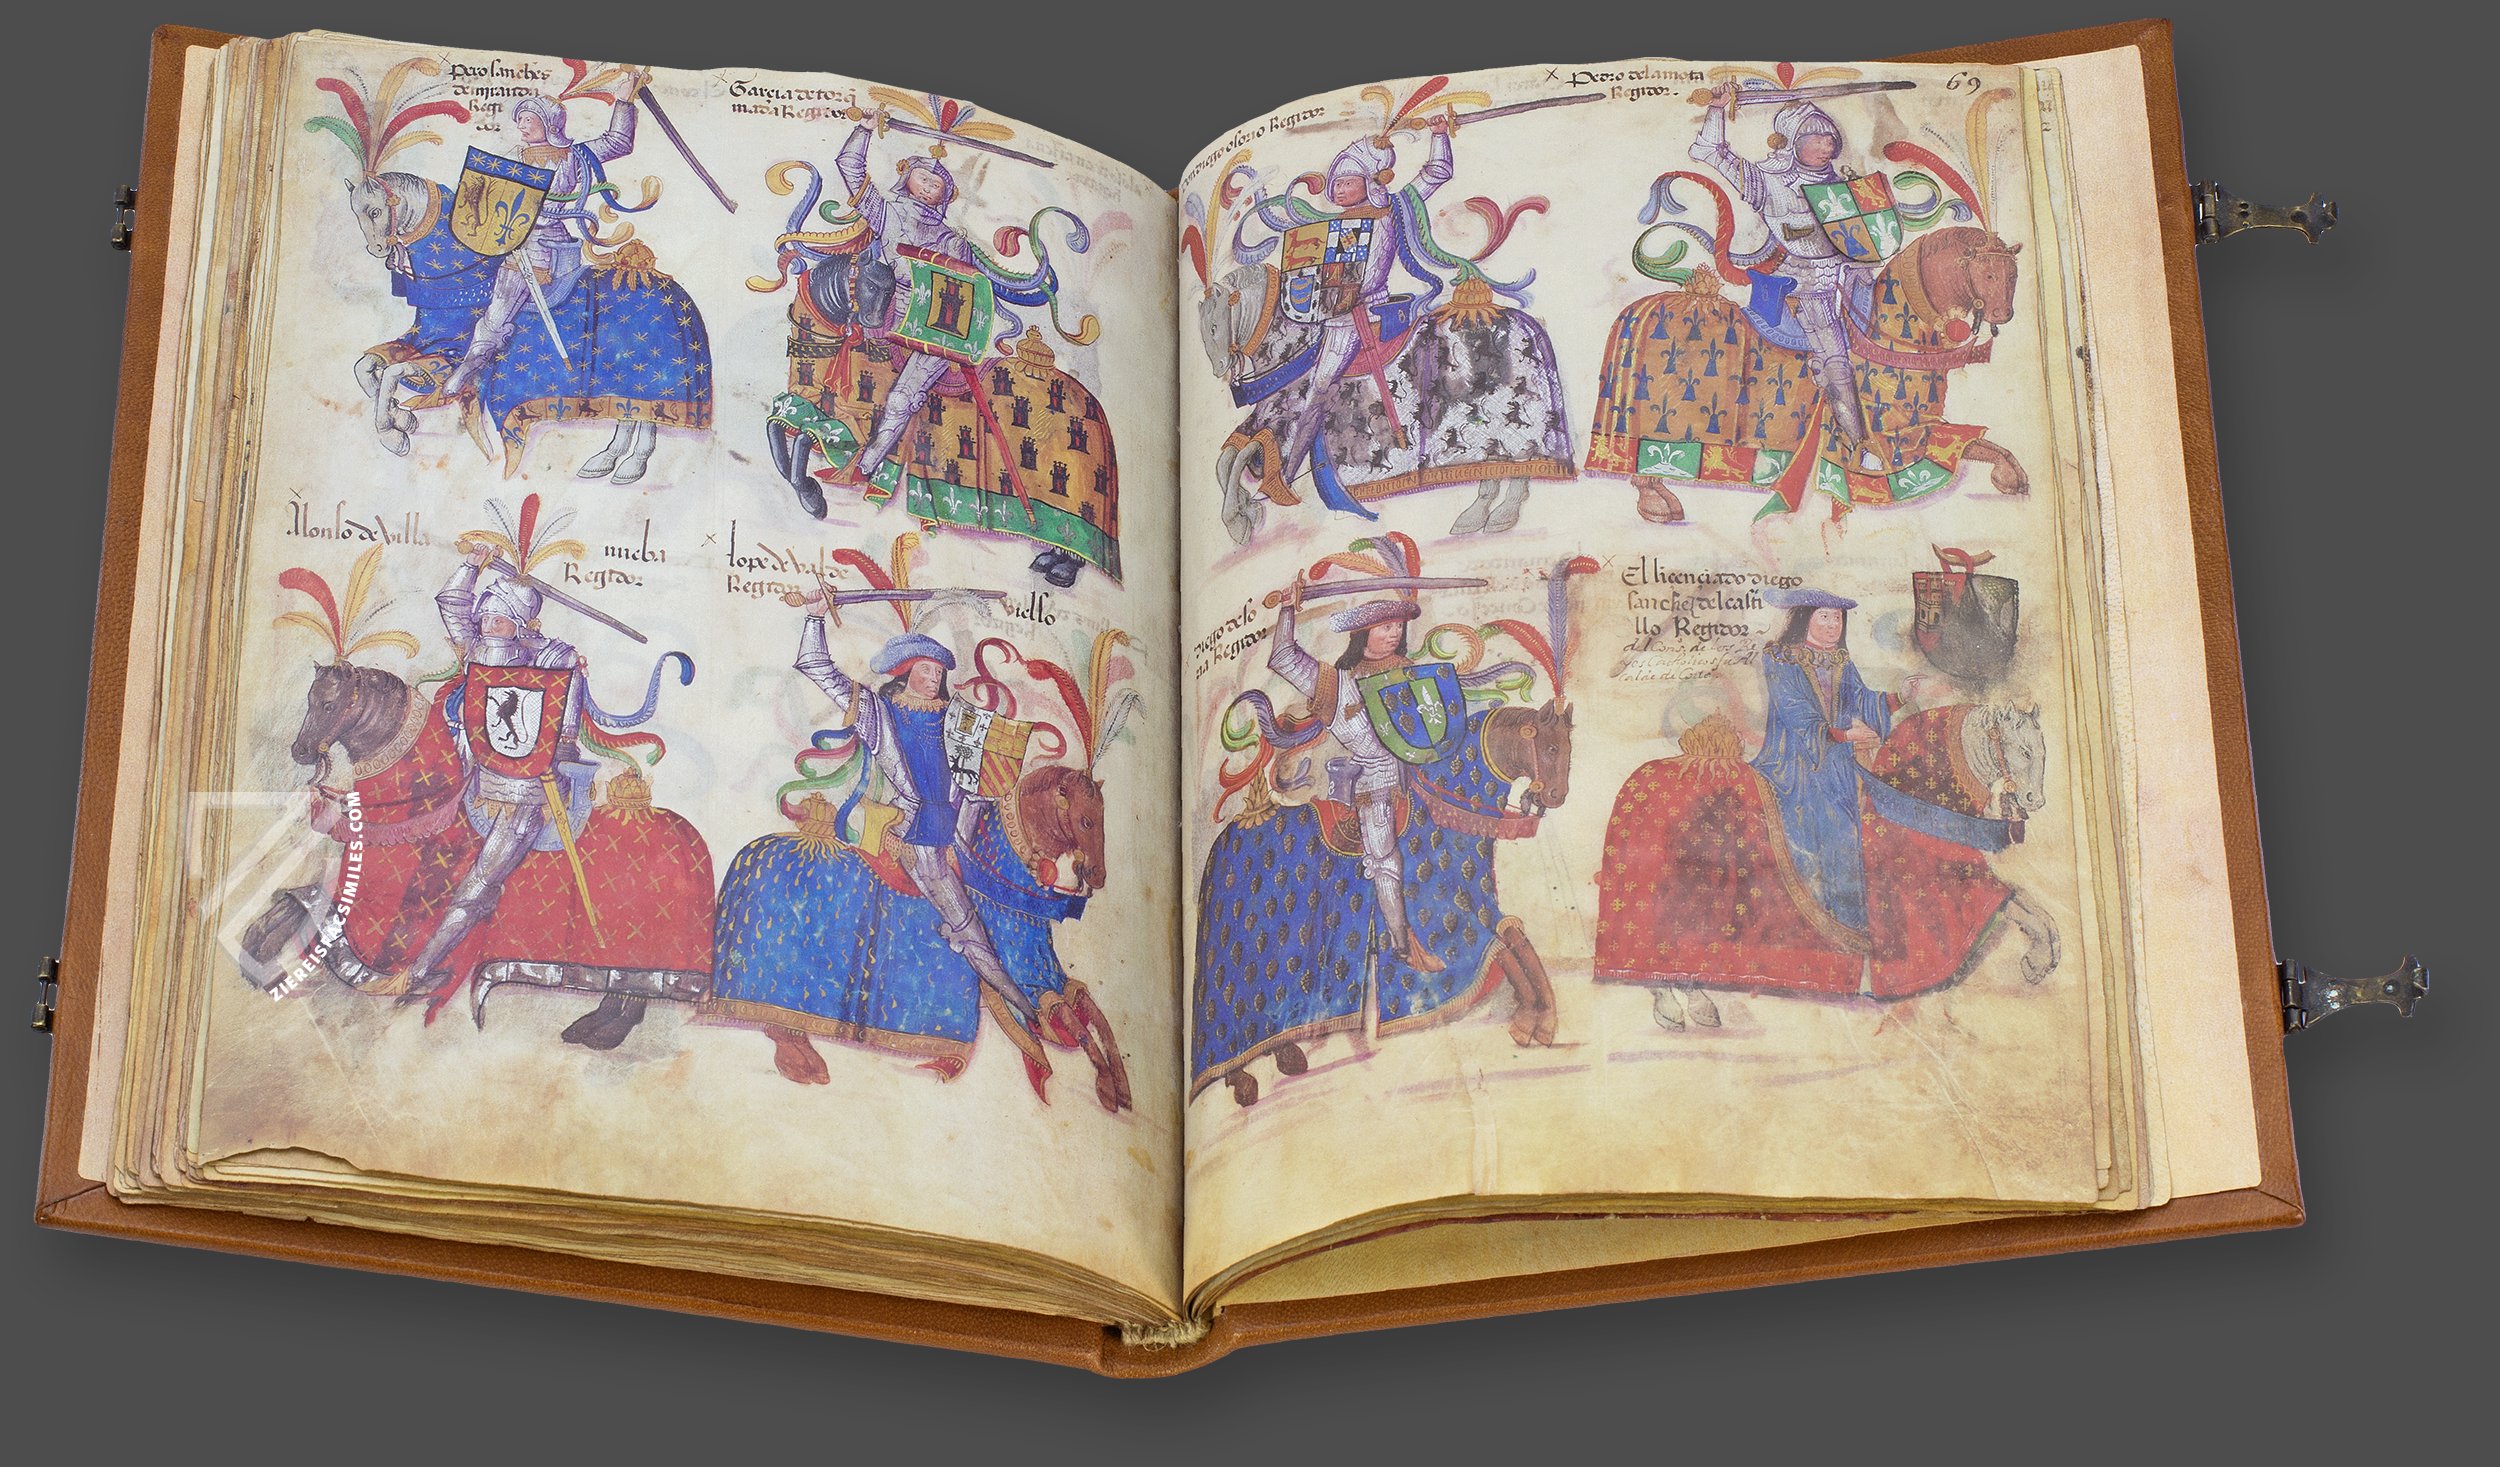 Pero sanches
de miranda
Regi
dor
Garcia de torq̃
mada Regidor
Alonso de Villa
nueba
Regidor
lope de Valde
Regidor
vielso
diego osorio Regidor
Pedro de la mota
Regidor.
69
diego de so
ria Regidor
El licenciado diego
sanchez del casti
llo Regidor
del Cons. de los Re
yes Catholicos su Al
calde de Corte.
ZIEREISFACSIMILES.COM